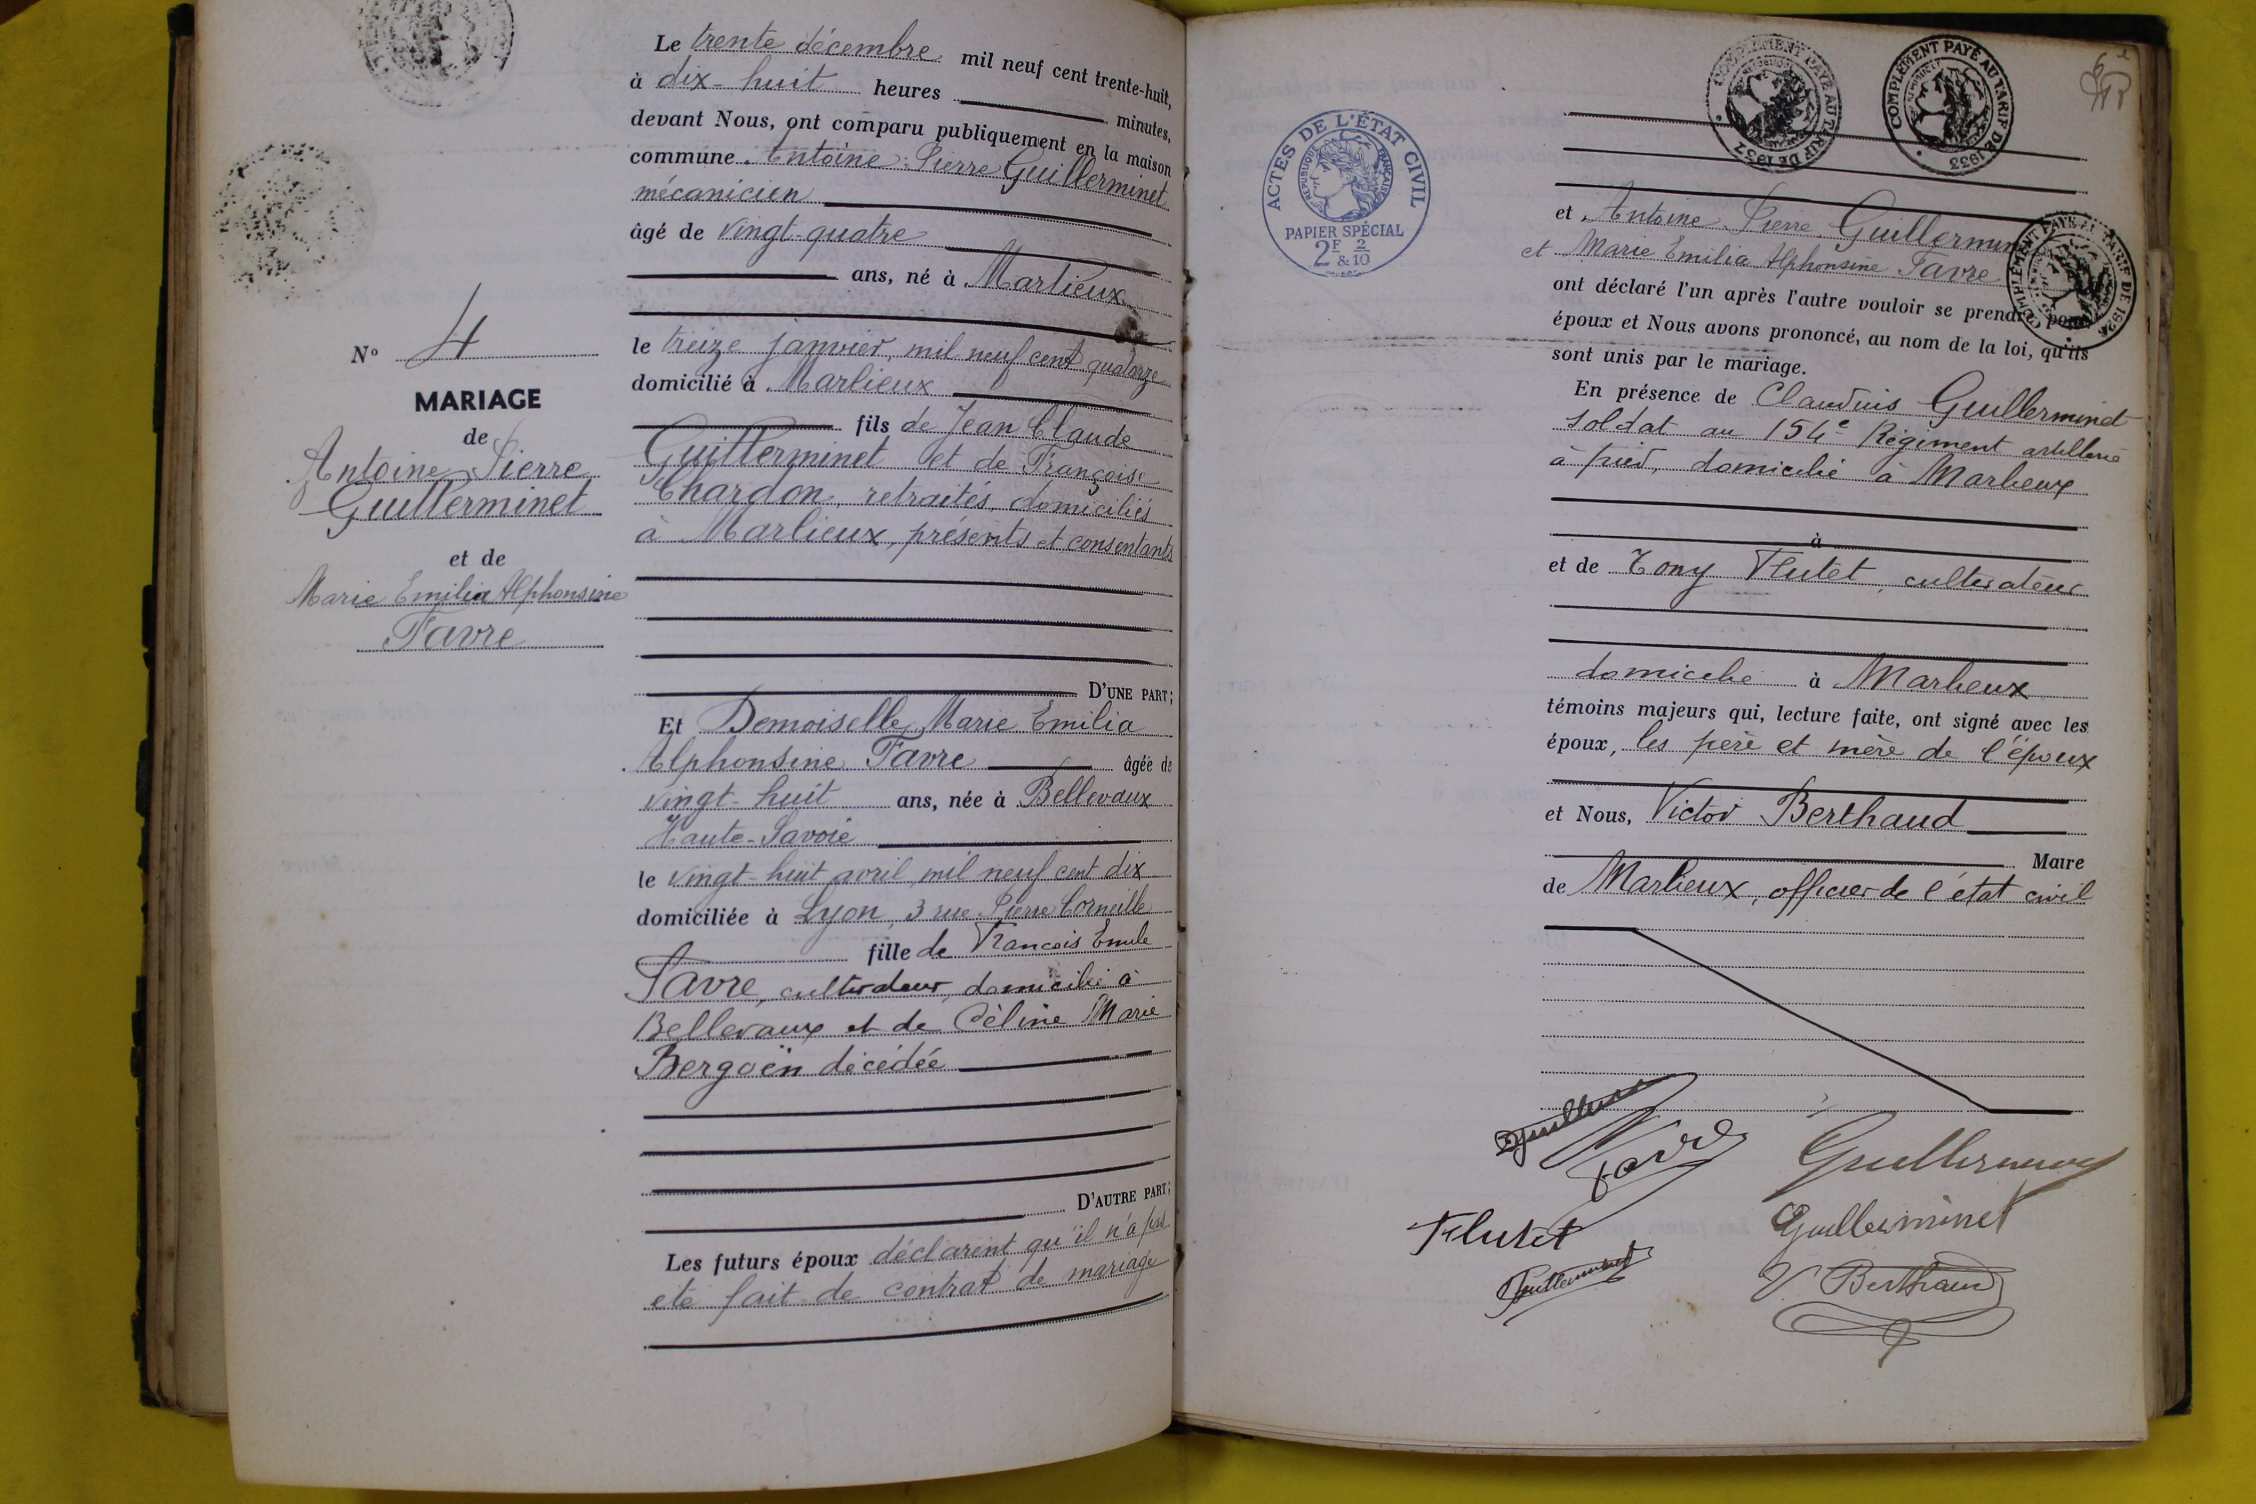 Le trente décembre mil neuf cent trente-huit,
à dix-huit heures minutes,
devant Nous, ont comparu publiquement en la maison
commune Antoine Pierre Guillerminet
mécanicien
âgé de vingt-quatre
ans, né à Marlieux
le treize janvier, mil neuf cent quatorze
domicilié à Marlieux
fils de Jean Claude
Guillerminet et de Françoise
Chardon, retraités, domiciliés
à Marlieux, présents et consentants
D'UNE PART;
Et Demoiselle Marie Emilia
Alphonsine Favre âgée de
vingt-huit ans, née à Bellevaux
Haute-Savoie
le vingt-huit avril, mil neuf cent dix
domiciliée à Lyon, 3 rue Pierre Corneille
fille de François Emile
Favre, cultivateur, domicilié à
Bellevaux et de Céline Marie
Bergoën décédée
D'AUTRE PART;
Les futurs époux déclarent qu'il n'a pas
été fait de contrat de mariage
N° 4
MARIAGE
de
Antoine Pierre
Guillerminet
et de
Marie Emilia Alphonsine
Favre
ACTES DE L'ÉTAT CIVIL
RÉPUBLIQUE FRANÇAISE
PAPIER SPÉCIAL
2F & 2/10
COMPLÉMENT PAYÉ AU TARIF DE 1937
COMPLÉMENT PAYÉ AU TARIF DE 1933
6
et Antoine Pierre Guillermin
et Marie Emilia Alphonsine Favre
COMPLÉMENT PAYÉ AU TARIF DE 192
ont déclaré l'un après l'autre vouloir se prendre pour
époux et Nous avons prononcé, au nom de la loi, qu'ils
sont unis par le mariage.
En présence de Claudius Guillerminet
soldat au 154e Régiment artillerie
à pied, domicilié à Marlieux
à
et de Tony Flutet, cultivateur
domicilié à Marlieux
témoins majeurs qui, lecture faite, ont signé avec les
époux, les père et mère de l'époux
et Nous, Victor Berthaud
Maire
de Marlieux, officier de l'état civil
Favre
Flutet
Guillerminet
Guillerminet
V. Berthaud